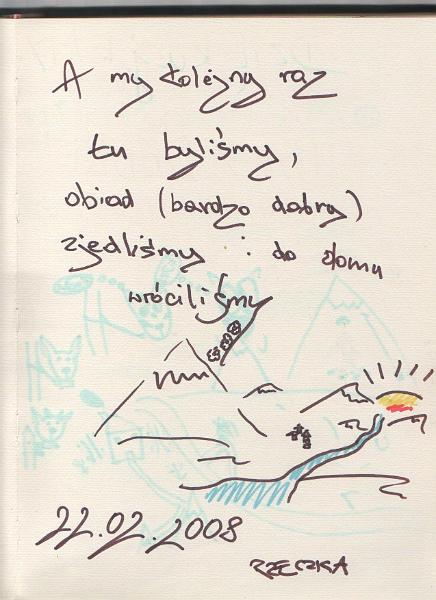 A my kolejny raz
tu byliśmy,
obiad (bardzo dobry)
zjedliśmy i do domu
wróciliśmy
22.02.2008
RZECZKA